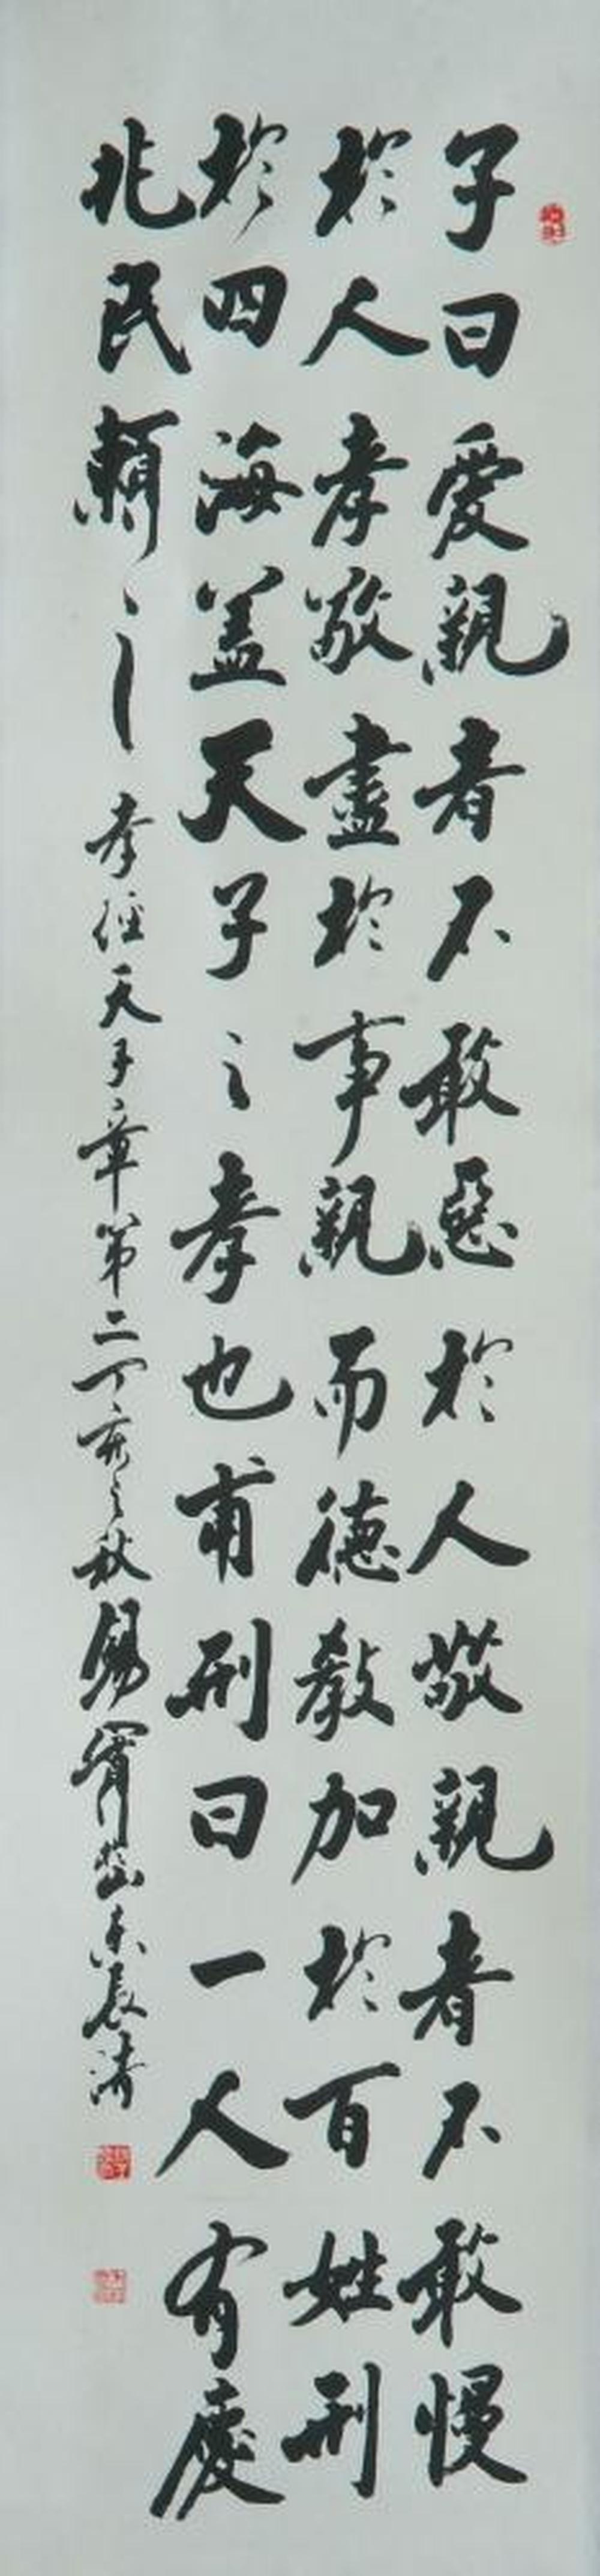 子曰愛親者不敢惡於人敬親者不敢慢
於人孝敬盡於事親而德教加於百姓刑
於四海蓋天子之孝也甫刑曰一人有慶
兆民賴之 孝經天子章第二丁亥之秋錫寧